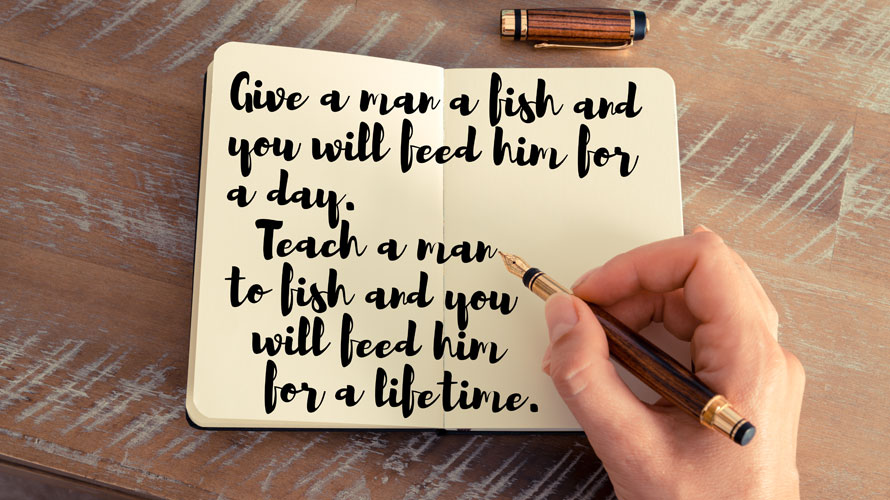 Give a man a fish and
you will feed him for
a day.
Teach a man
to fish and you
will feed him
for a lifetime.